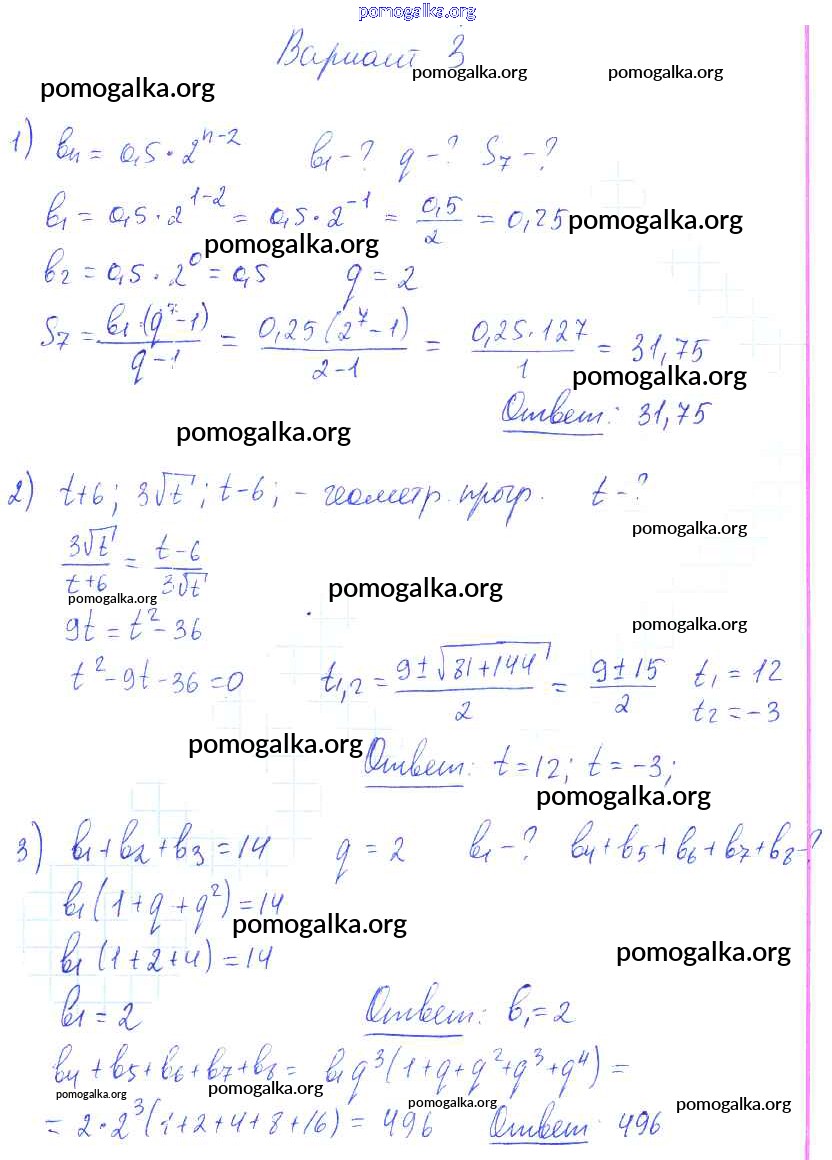 pomogalka.org
Вариант 3
pomogalka.org pomogalka.org pomogalka.org
1) bn = 0,5 · 2^(n-2) b1 - ? q - ? S7 - ?
b1 = 0,5 · 2^(1-2) = 0,5 · 2^(-1) = 0,5/2 = 0,25 pomogalka.org
pomogalka.org
b2 = 0,5 · 2^0 = 0,5 q = 2
S7 = b1·(q^7-1)/(q-1) = 0,25(2^7-1)/(2-1) = 0,25·127/1 = 31,75
pomogalka.org
Ответ: 31,75
pomogalka.org
2) t+6; 3√t; t-6; - геометр. прогр. t - ?
pomogalka.org
3√t/(t+6) = (t-6)/(3√t)
pomogalka.org pomogalka.org
9t = t² - 36 pomogalka.org
t² - 9t - 36 = 0 t1,2 = (9±√(81+144))/2 = (9±15)/2 t1 = 12
t2 = -3
pomogalka.org
Ответ: t = 12; t = -3;
pomogalka.org
3) b1 + b2 + b3 = 14 q = 2 b1 - ? b4 + b5 + b6 + b7 + b8 - ?
b1(1 + q + q²) = 14
pomogalka.org
b1(1+2+4) = 14 pomogalka.org
b1 = 2 Ответ: b1 = 2
b4 + b5 + b6 + b7 + b8 = b1q³(1+q+q²+q³+q⁴) =
pomogalka.org pomogalka.org pomogalka.org pomogalka.org
= 2·2³(1+2+4+8+16) = 496 Ответ: 496